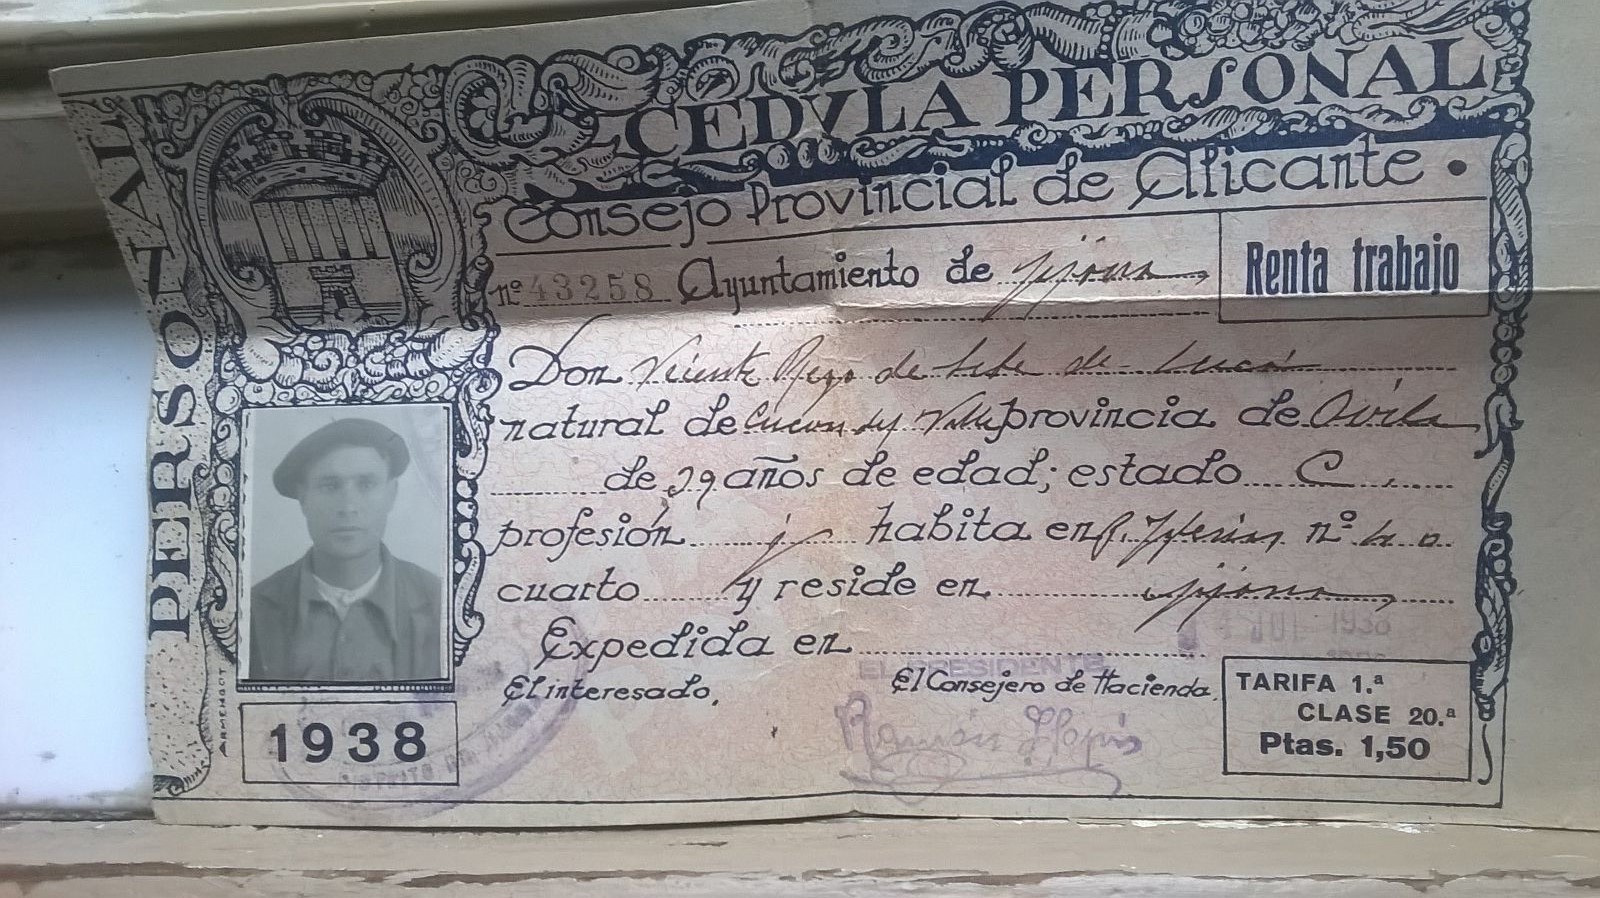 PERSONAL
CEDVLA PERSONAL
Consejo Provincial de Alicante.
nº 43258 Ayuntamiento de Jijona
Renta trabajo
Don Vicente de de
natural de Cuevas del Valle provincia de Avila
de 29 años de edad; estado C.
profesión j habita en P. Iglesias nº
cuarto y reside en Jijona
Expedida en
JUL 1938
EL PRESIDENTE
El interesado,
El Consejero de Hacienda,
Ramón Llopis
ARMENGOT
1938
TARIFA 1.ª
CLASE 20.ª
Ptas. 1,50